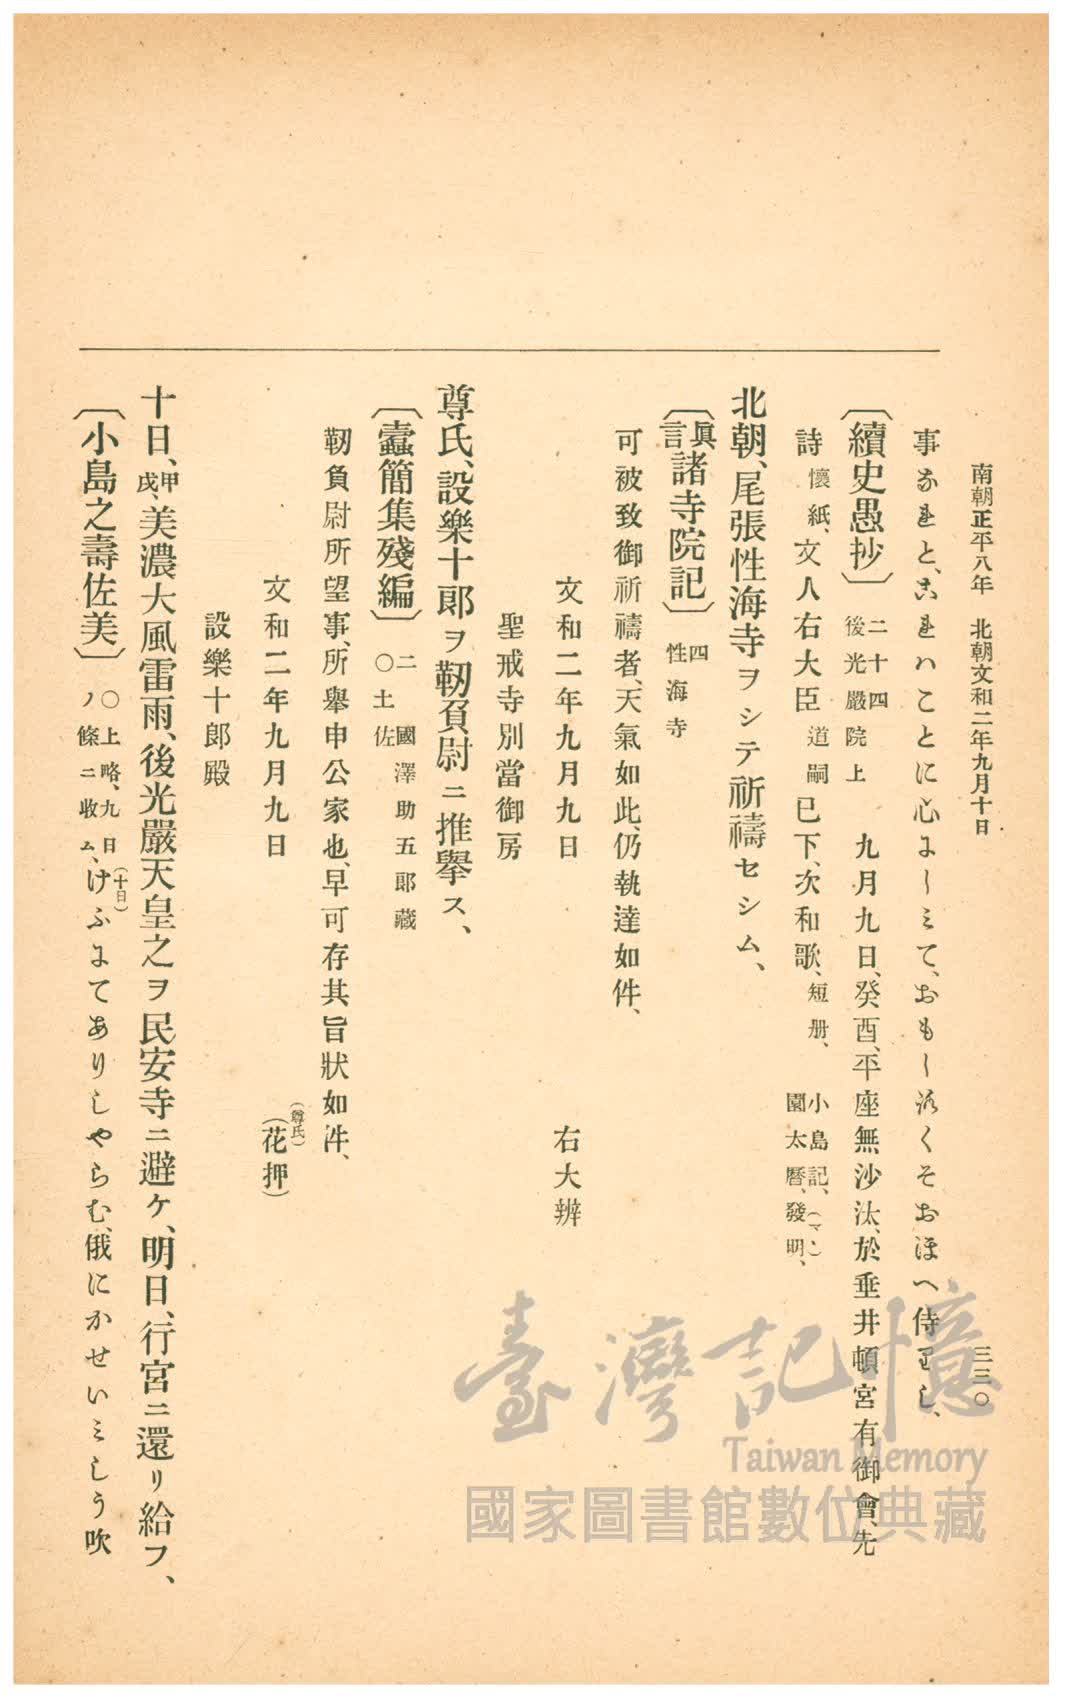 南朝正平八年 北朝文和二年九月十日 三三〇
事なれと、これハことに心にしミて、おもしろくそおほへ侍りし、
〔續史愚抄〕 二十四 後光嚴院上 九月九日、癸酉、平座無沙汰、於垂井頓宮有御會、先
詩 懷紙、文人右大臣 道嗣 已下、次和歌、短册、 小島記、(マヽ) 園太曆、發明、
北朝、尾張性海寺ヲシテ祈禱セシム、
〔眞言諸寺院記〕 四 性海寺
可被致御祈禱者、天氣如此、仍執達如件、
文和二年九月九日 右大辨
聖戒寺別當御房
尊氏、設樂十郎ヲ靭負尉ニ推擧ス、
〔蠧簡集殘編〕 二 國澤助五郎藏 〇土佐
靭負尉所望事、所擧申公家也、早可存其旨狀如件、
文和二年九月九日 (尊氏) (花押)
設樂十郎殿
十日、甲戌、美濃大風雷雨、後光嚴天皇之ヲ民安寺ニ避ケ、明日、行宮ニ還リ給フ、
〔小島之壽佐美〕 〇上略、九日ノ條ニ收ム、けふ(十日)にてありしやらむ、俄にかせいミしう吹
臺灣記憶
Taiwan Memory
國家圖書館數位典藏